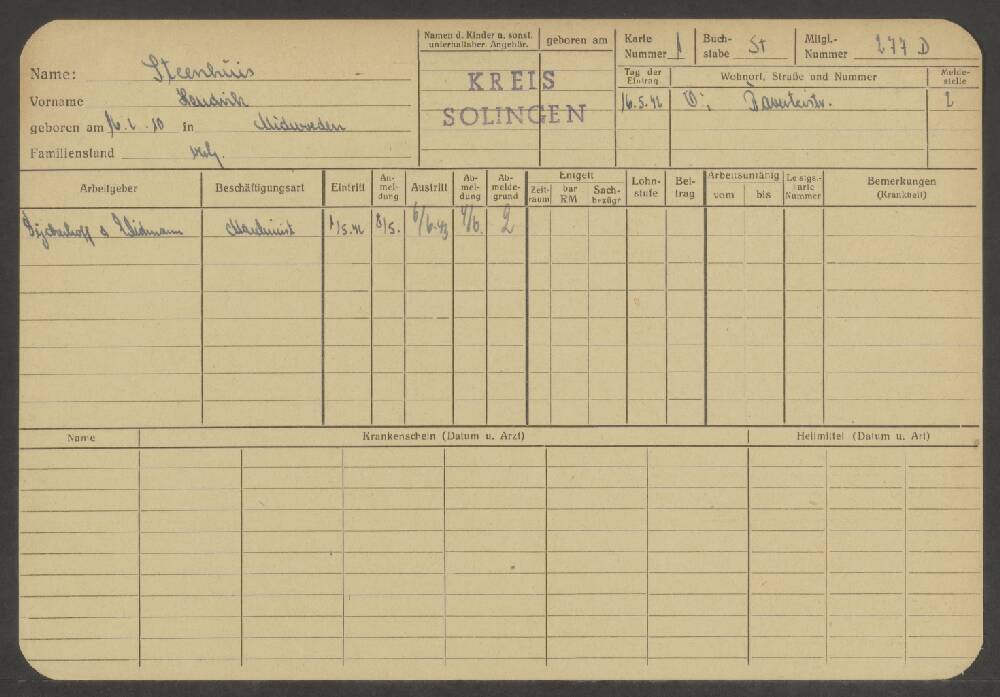 Name: Steenhuis
Vorname Hendrik
geboren am 16.1.10 in Midwoeden
Familienstand verh.
Namen d. Kinder u. sonst. unterhaltsber. Angehör.
geboren am
KREIS
SOLINGEN
Karte Nummer 1
Buchstabe St
Mitgl.-Nummer 277 D
Tag der Eintrag.
Wohnort, Straße und Nummer
Meldestelle
16.5.42
2
Arbeitgeber
Beschäftigungsart
Eintritt
An-mel-dung
Austritt
Ab-mel-dung
Ab-melde-grund
Entgelt
Zeit-raum
bar RM
Sach-bezüge
Lohn-stufe
Bei-trag
Arbeitsunfähig
vom
bis
Leistgs.-karte Nummer
Bemerkungen (Krankheit)
Dyckerhoff & Widmann
Maschinist
1/5.42
8/5.
6/6.43
4/6.
2
Name
Krankenschein (Datum u. Arzt)
Heilmittel (Datum u. Art)